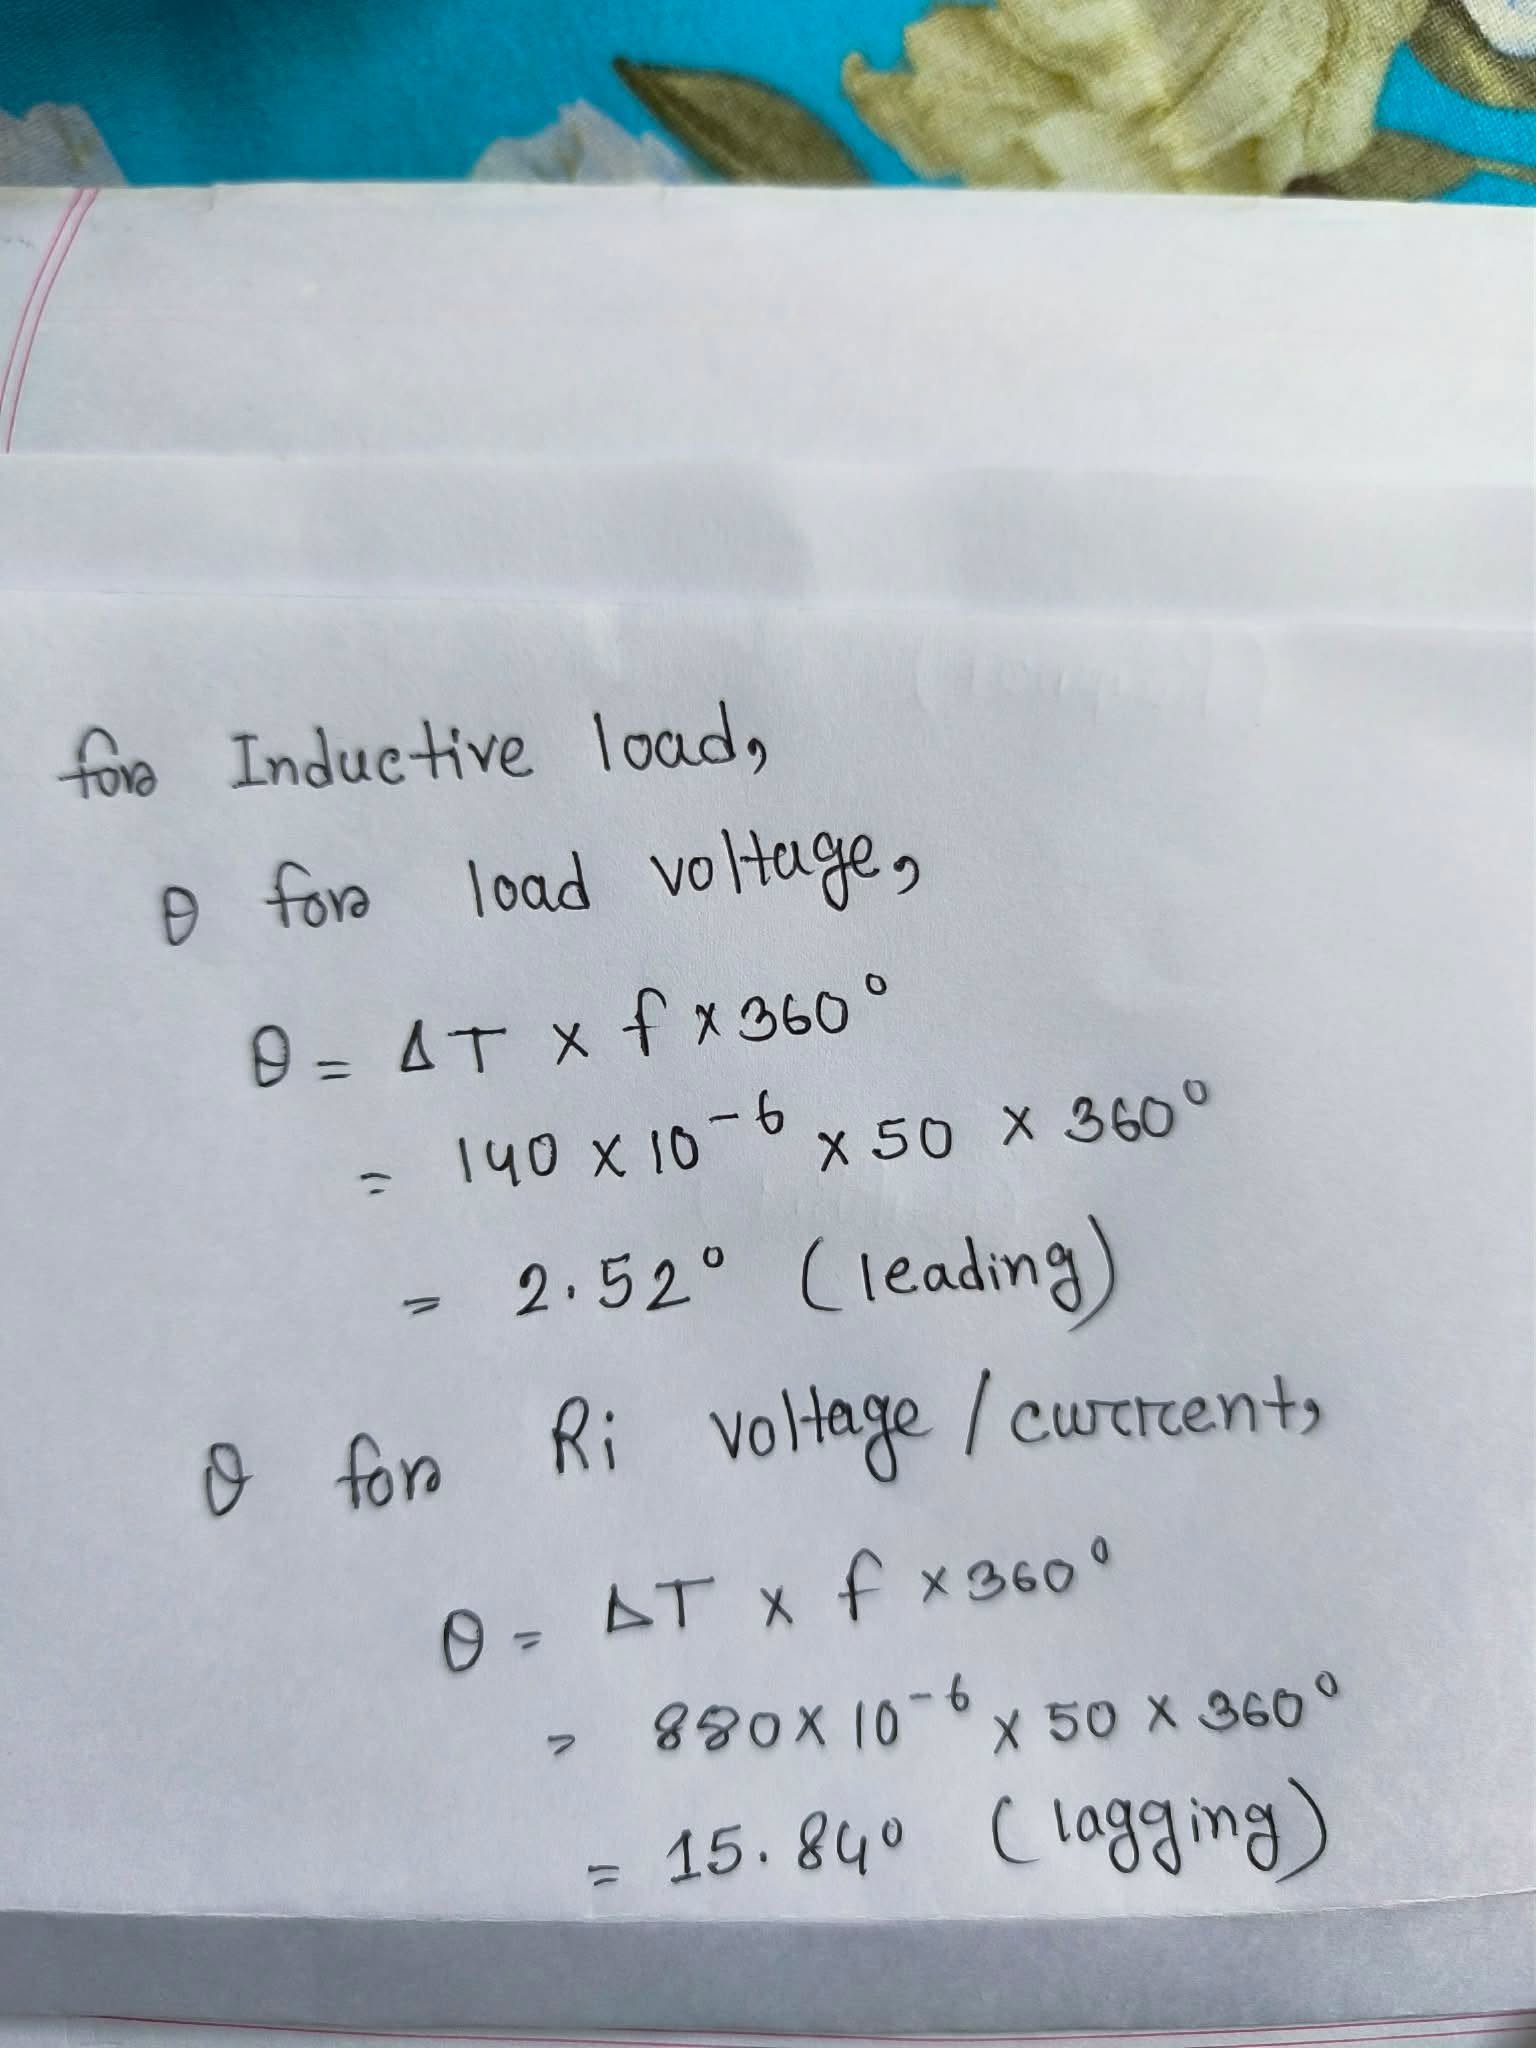 for Inductive load,
θ for load voltage,
θ = ΔT × f × 360°
= 140 × 10⁻⁶ × 50 × 360°
= 2.52° (leading)
θ for Ri voltage / current,
θ = ΔT × f × 360°
= 880 × 10⁻⁶ × 50 × 360°
= 15.84° (lagging)